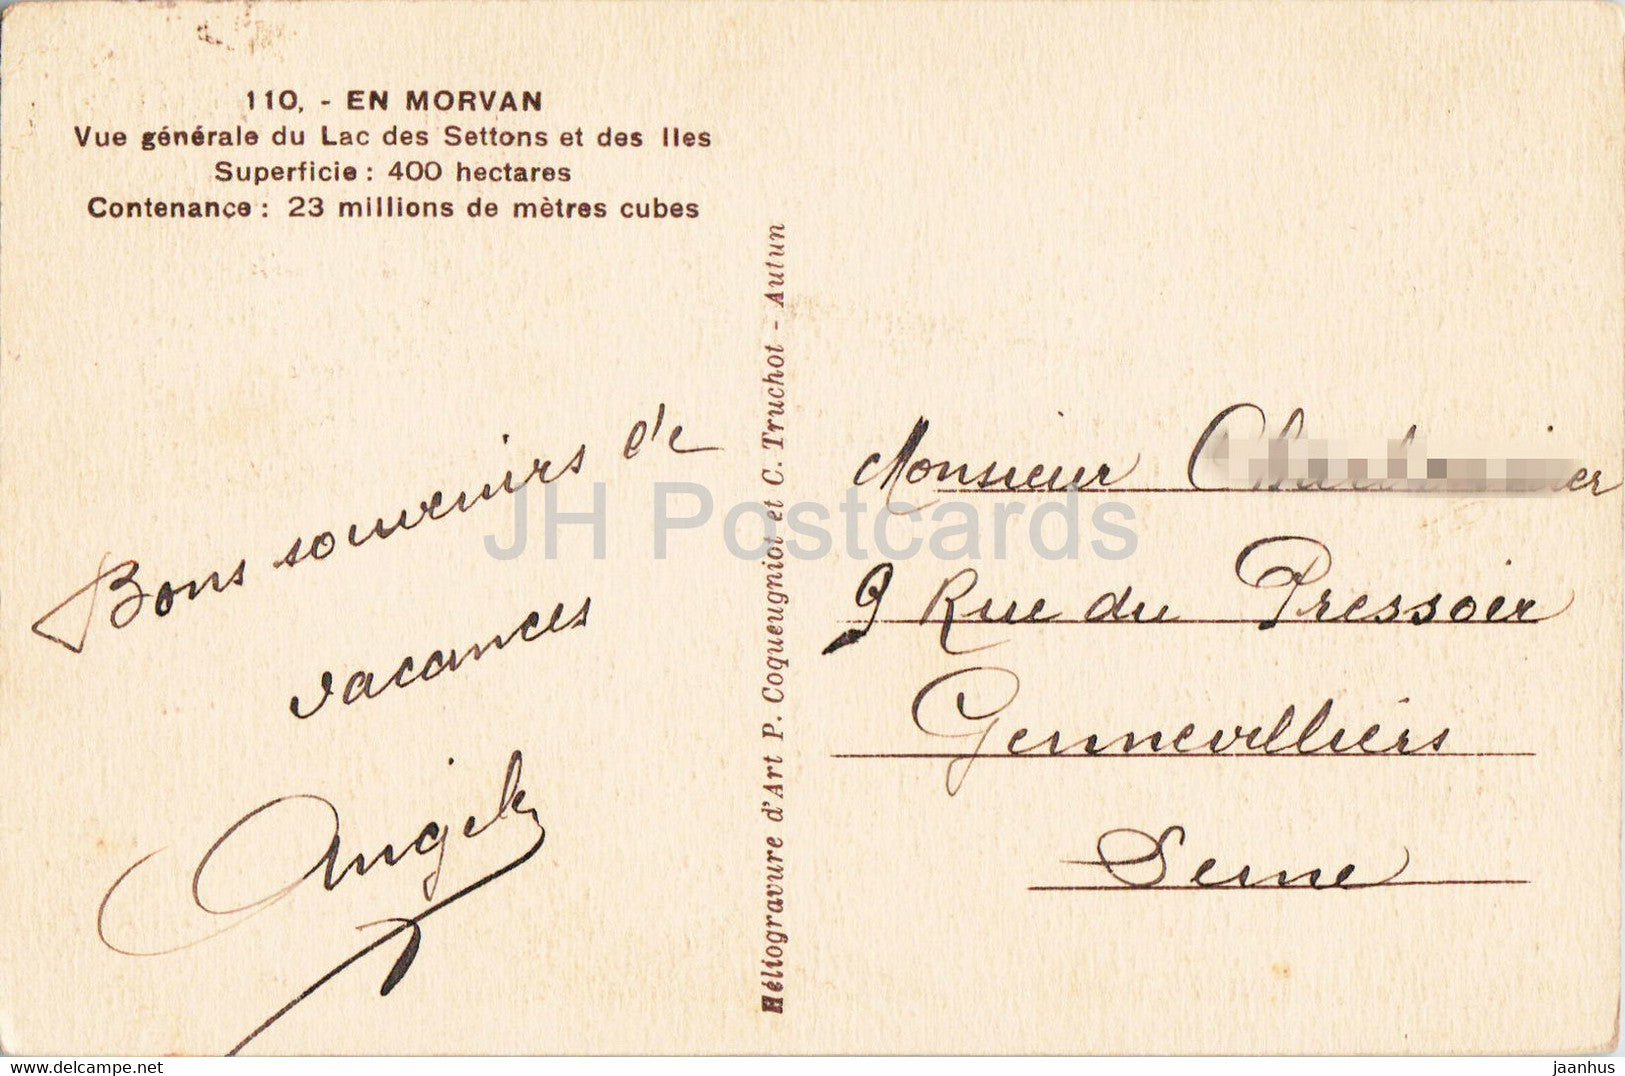 110. - EN MORVAN
Vue générale du Lac des Settons et des Iles
Superficie : 400 hectares
Contenance : 23 millions de mètres cubes
Bons souvenirs de
vacances
Héliogravure d'Art P. Coqueugniot et C. Truchot - Autun
Monsieur
9 Rue du Pressoir
Gennevilliers
Seine
JH Postcards
www.delcampe.net
jaanhus